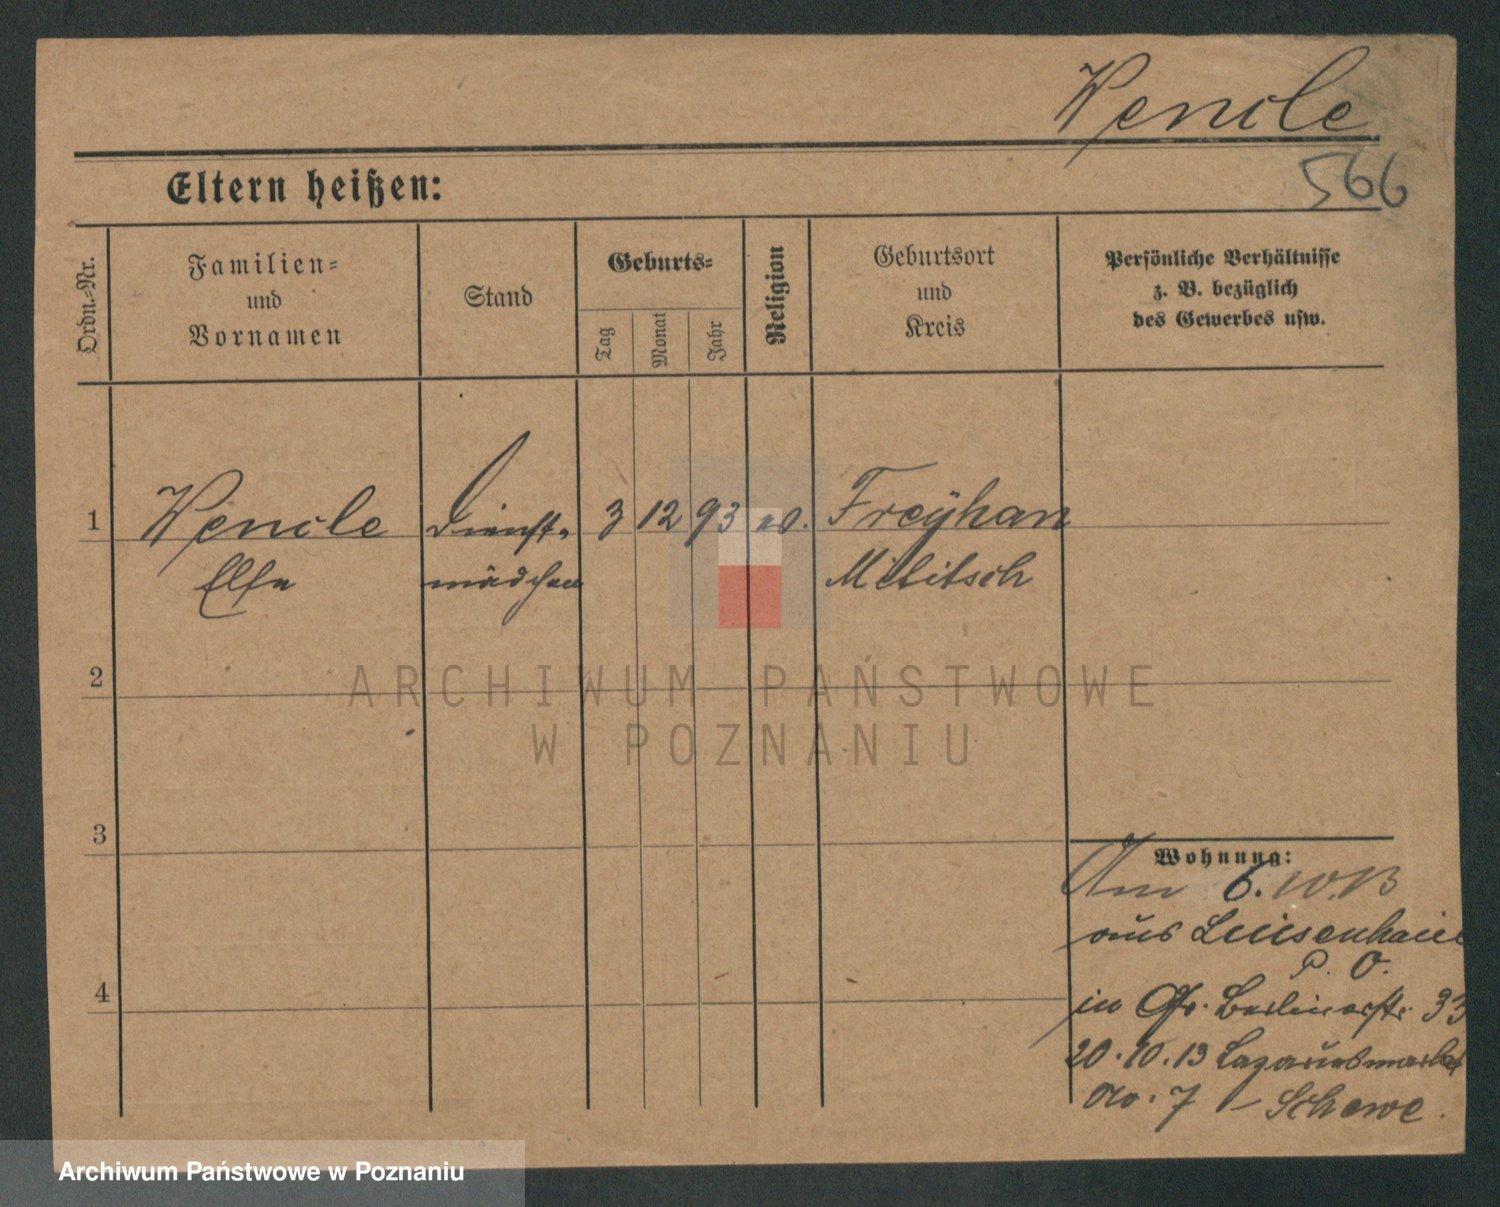 Wencle
566
Eltern heißen:
Ordn.=Nr.
Familien=
und
Vornamen
Stand
Geburts=
Tag
Monat
Jahr
Religion
Geburtsort
und
Kreis
Persönliche Verhältnisse
z. B. bezüglich
des Gewerbes usw.
1 Wencle Dienst- 3 12 93 ev. Freÿhan
Else mädchen Militsch
2
ARCHIWUM PAŃSTWOWE
W POZNANIU
3
Wohnung:
Am 6.10.13
aus Luisenhain
P. O.
in Gr. Berlinerstr. 33
4
20.10.13 Lazarusmarkt
No. 7 – Schewe.
Archiwum Państwowe w Poznaniu